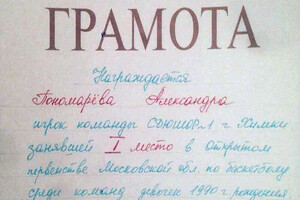 ГРАМОТА
Награждается
Пономарёва Александра
игрок команды СДЮШОР №1 г. Химки
занявшей I место в Открытом
первенстве Московской обл. по баскетболу
среди команд девочек 1990 г. рождения